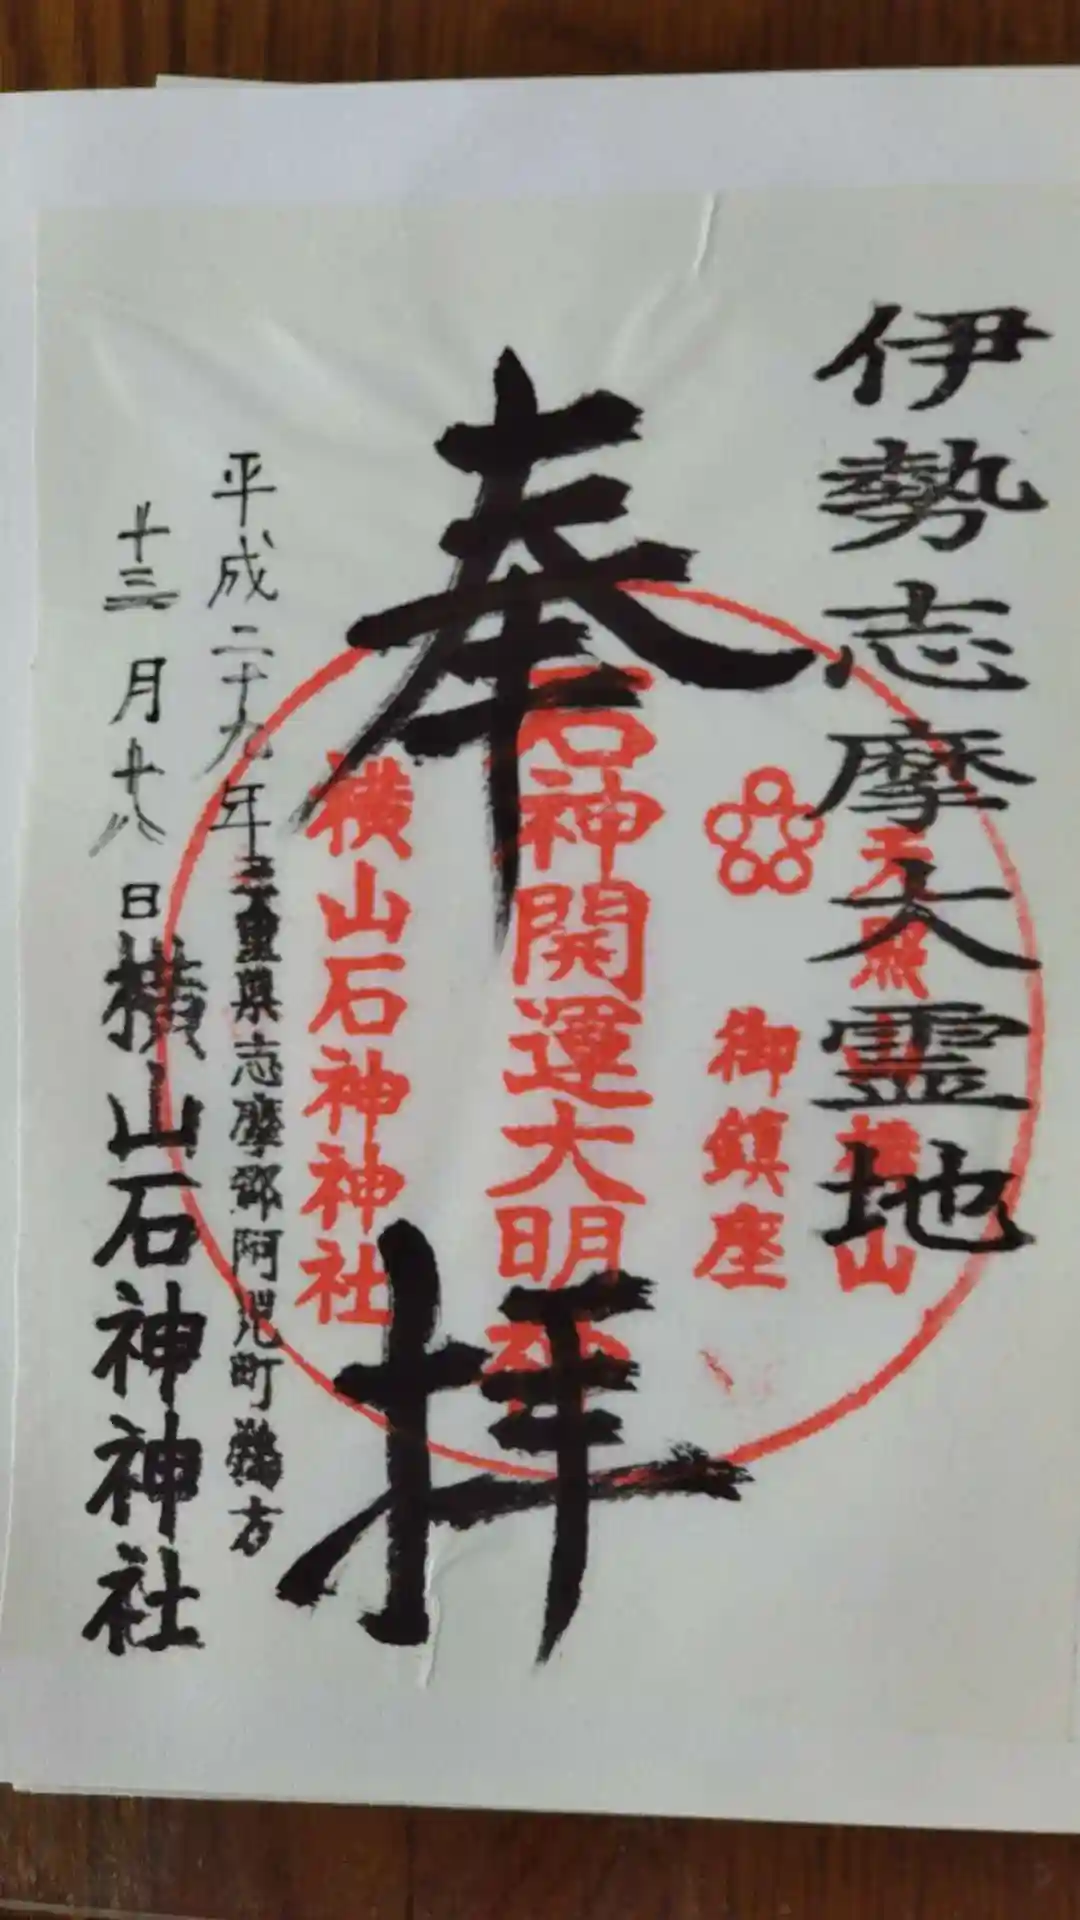 伊勢志摩大霊地
御鎮座
奉拝
石神開運大明神
横山石神神社
平成二十九年
三重県志摩郡阿児町鵜方
十三月十八日
横山石神神社